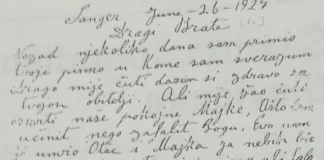 Sanger June - 26 - 1924
Dragi Brate
Nazad njekoliko dana sam primio
tvoje pismo u kome sam sverazumi
Drago mije čuti dasam si zdravo sa
tvojom obitelji. Ali mije žao čuti
osmrti naše pokojne Majke, Ašto ćem
učinit nego zafalit Bogu. Evo nam
je umrio Otac i Majka za